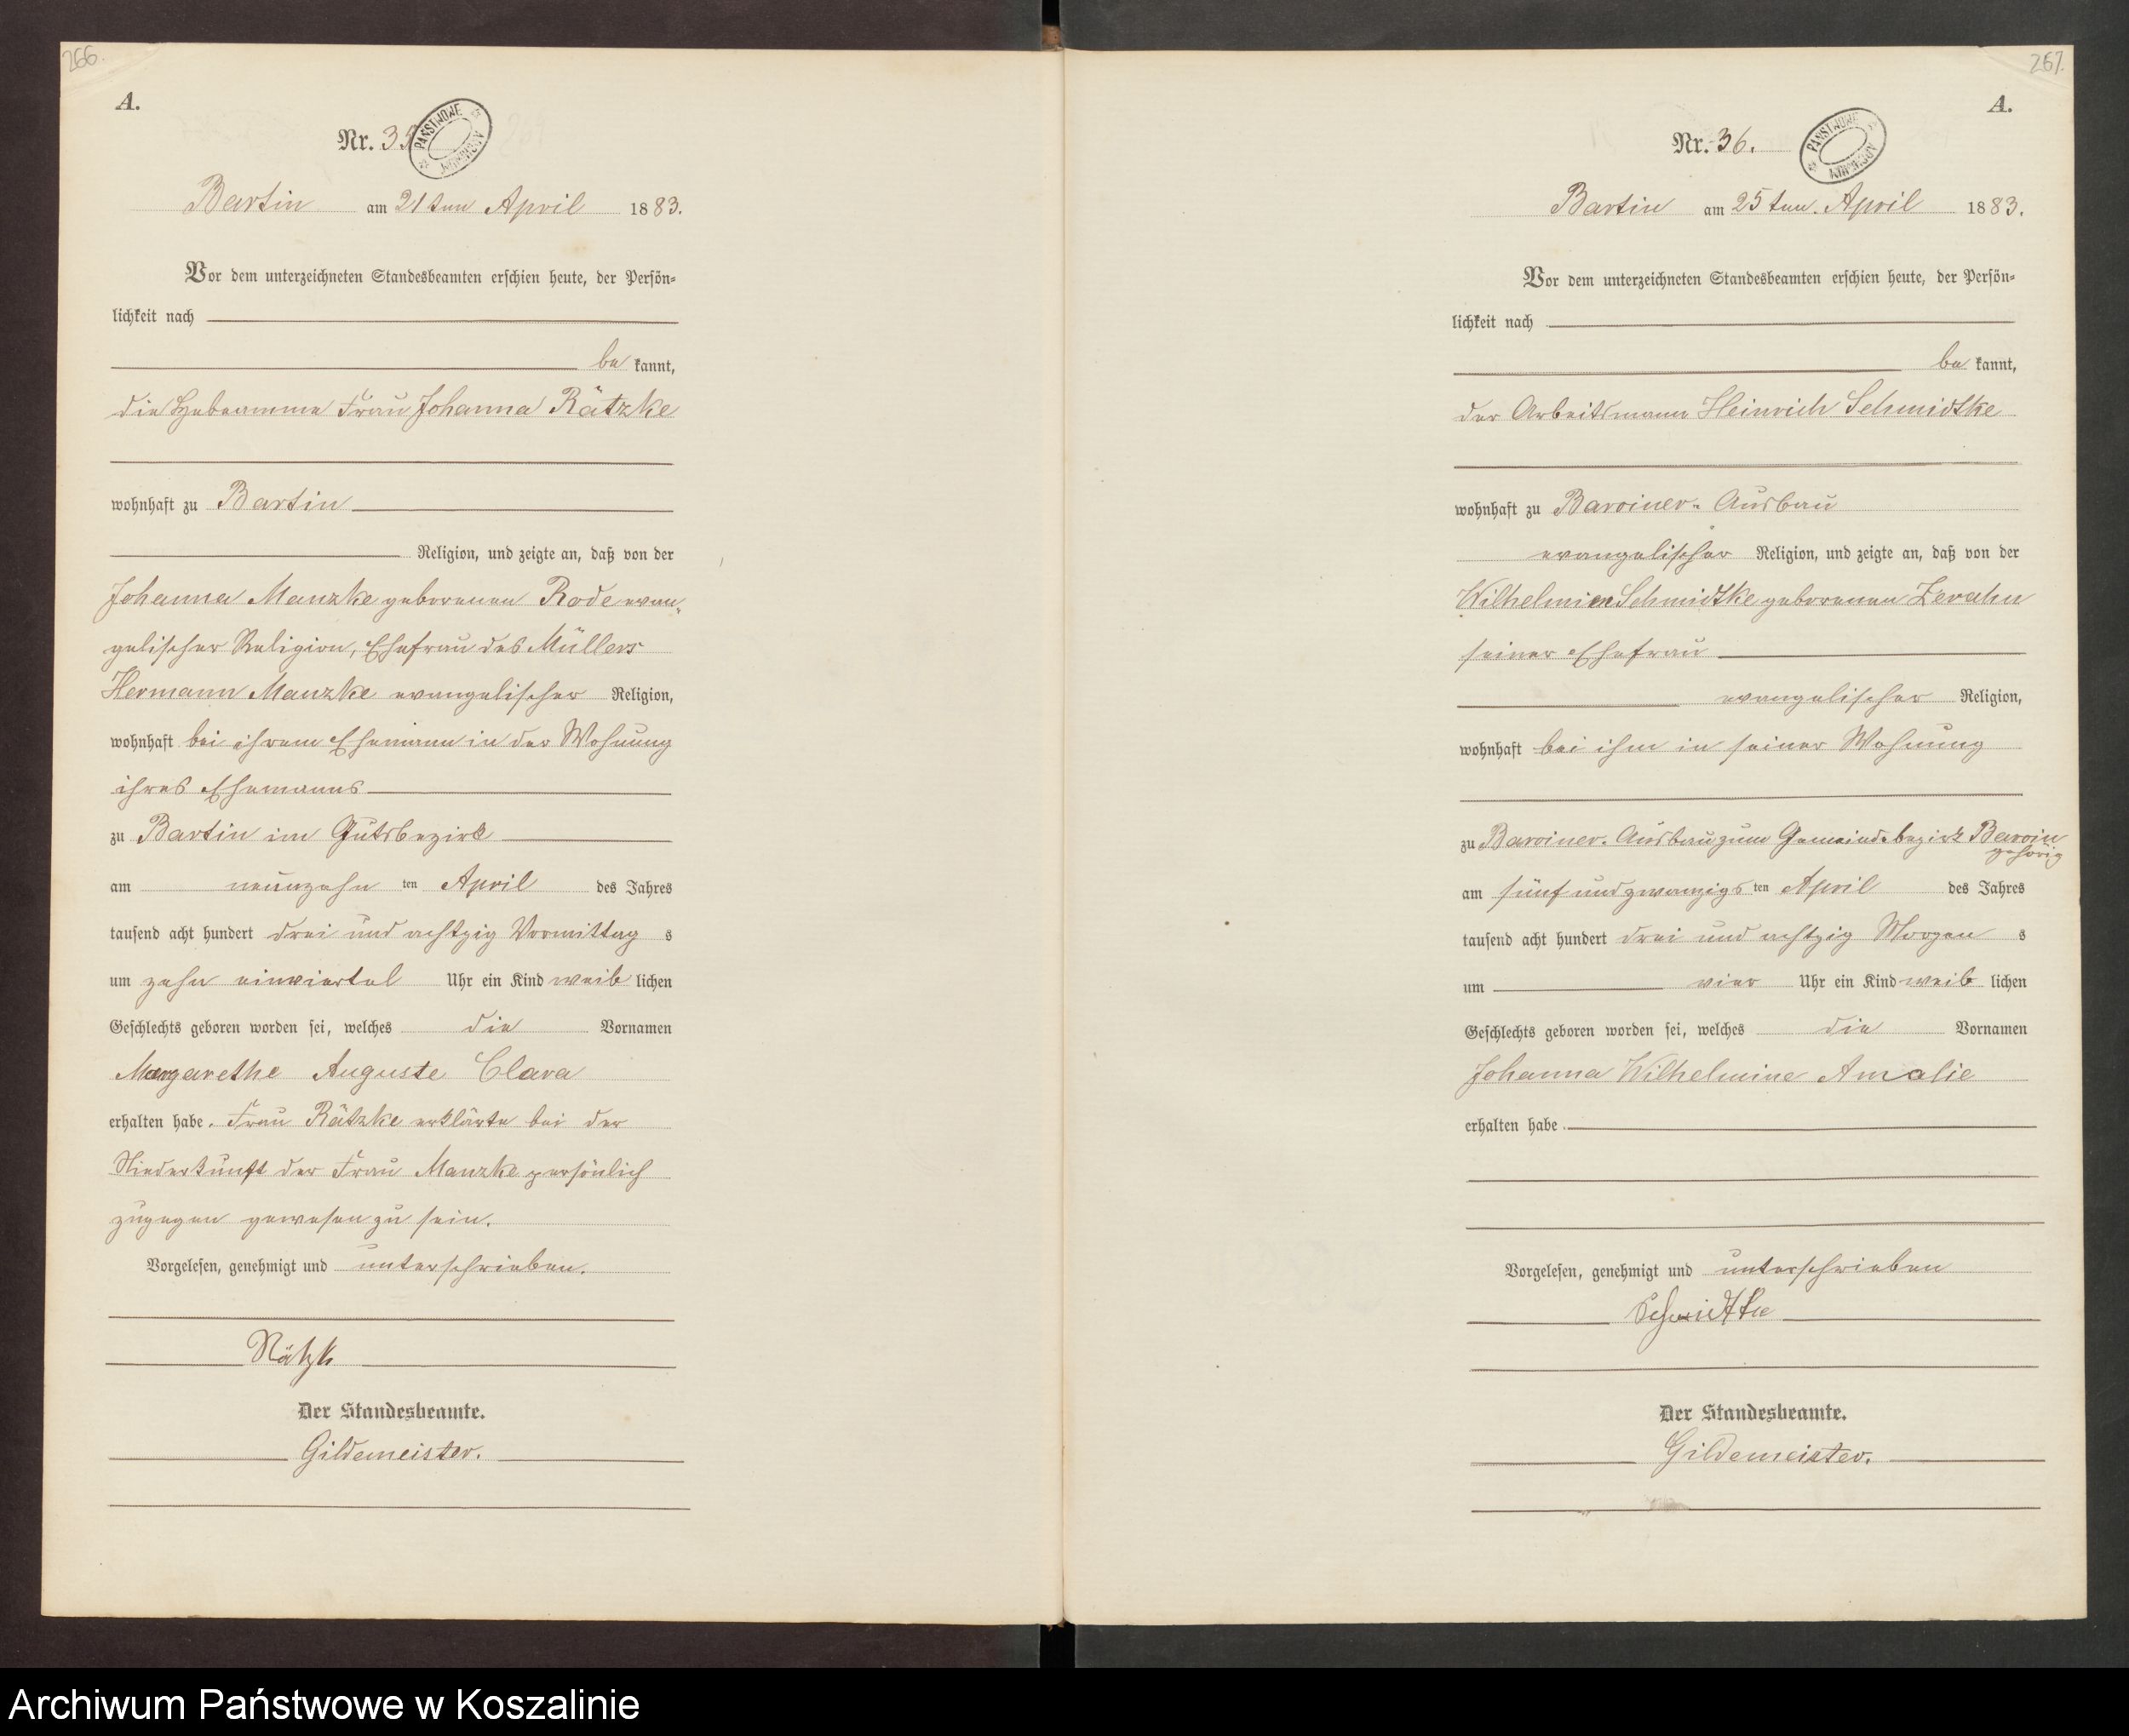 266.
A.
Nr. 35
PAŃSTWOWE ARCHIWUM
Bartin am 21ten April 1883.
Vor dem unterzeichneten Standesbeamten erschien heute, der Persön-
lichkeit nach
be kannt,
die Hebeamme Frau Johanna Rätzke
wohnhaft zu Bartin
Religion, und zeigte an, daß von der
Johanna Manzke geborenen Rode evan-
gelischer Religion, Ehefrau des Müllers
Hermann Manzke evangelischer Religion,
wohnhaft bei ihrem Ehemann in der Wohnung
ihres Ehemanns
zu Bartin im Gutsbezirk
am neunzehn ten April des Jahres
tausend acht hundert drei und achtzig Vormittag s
um zehn einviertel Uhr ein Kind weib lichen
Geschlechts geboren worden sei, welches die Vornamen
Margarethe Auguste Clara
erhalten habe. Frau Rätzke erklärte bei der
Niederkunft der Frau Manzke persönlich
zugegen gewesen zu sein.
Vorgelesen, genehmigt und unterschrieben.
Rätzk
Der Standesbeamte.
Gildemeister.
267.
A.
Nr. 36.
PAŃSTWOWE ARCHIWUM
Bartin am 25ten. April 1883.
Vor dem unterzeichneten Standesbeamten erschien heute, der Persön-
lichkeit nach
be kannt,
der Arbeitsmann Heinrich Schmidtke
wohnhaft zu Barviner-Ausbau
evangelischer Religion, und zeigte an, daß von der
Schmidtke geborenen Zerahn
seiner Ehefrau
evangelischer Religion,
wohnhaft bei ihm in seiner Wohnung
zu Barviner-Ausbau zum Gemeindebezirk Barvin
gehörig
am fünf und zwanzigs ten April des Jahres
tausend acht hundert drei und achtzig Morgen s
um vier Uhr ein Kind weib lichen
Geschlechts geboren worden sei, welches die Vornamen
Johanna Wilhelmine Amalie
erhalten habe.
Vorgelesen, genehmigt und unterschrieben
Schmidtke
Der Standesbeamte.
Gildemeister.
Archiwum Państwowe w Koszalinie